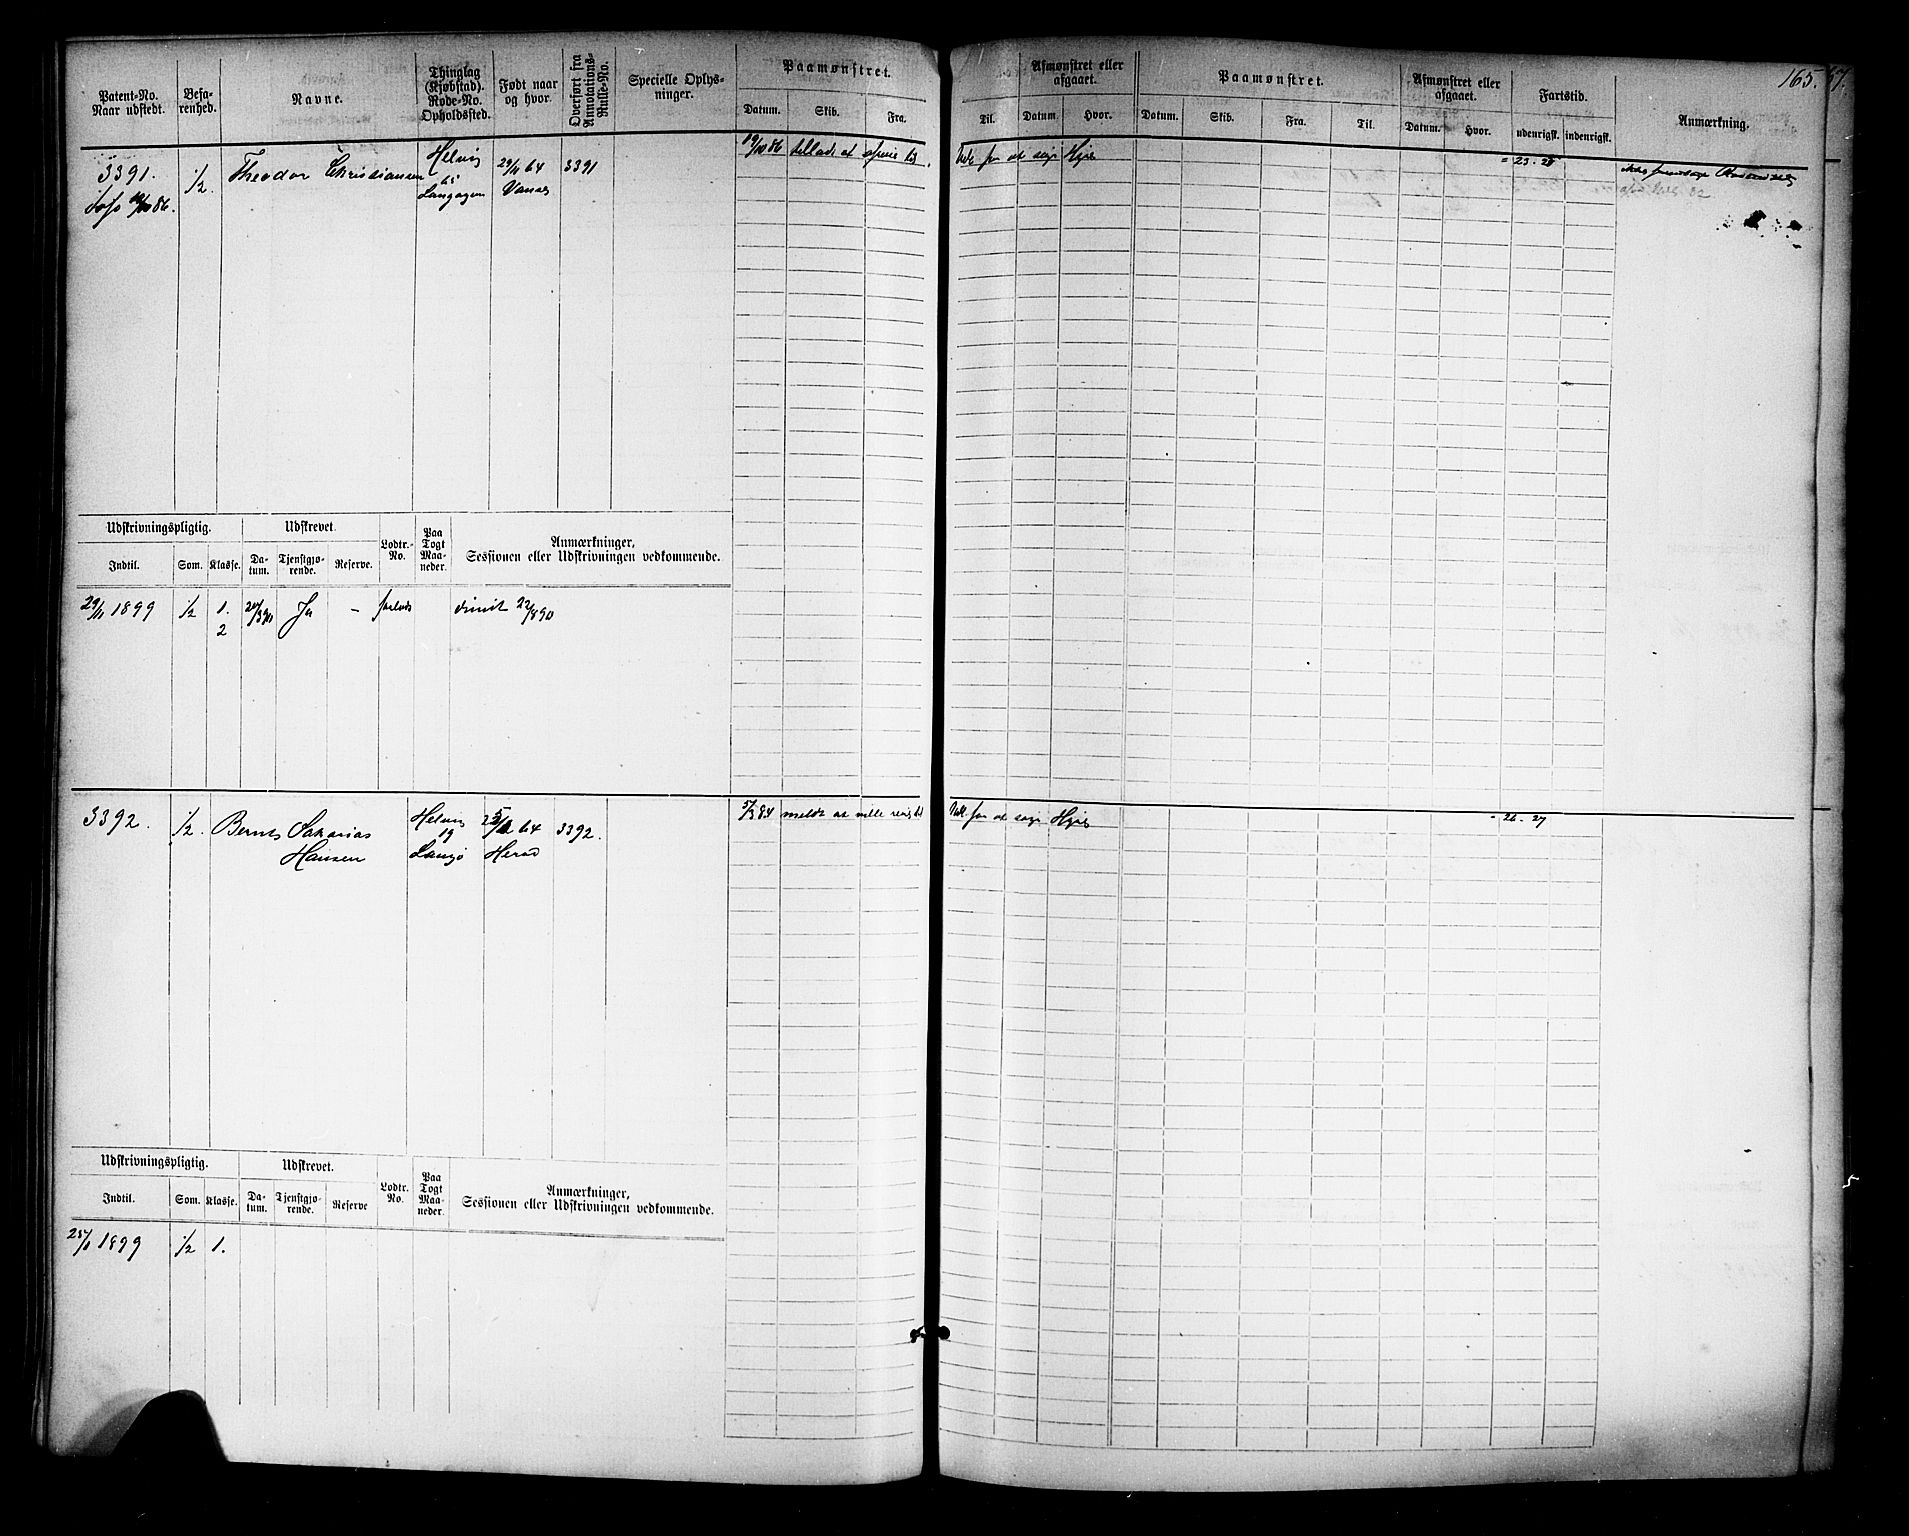 165. 57.
Patent-No. Naar udstedt.
Befarenhed.
Navne.
Thinglag (Kjøbstad). Rode-No. Opholdssted.
Født naar og hvor.
Overført fra Annotations-Rulle-No.
Specielle Oplysninger.
Paamønstret.
Datum. Skib. Fra.
Til.
Afmønstret eller afgaaet.
Datum. Hvor.
Paamønstret.
Datum. Skib. Fra. Til.
Afmønstret eller afgaaet.
Datum. Hvor.
Fartstid.
udenrigst. indenrigst.
Anmærkning.
3391. 1/2 Theodor Christiansen Helvig 29/11 64 3391
65 Vanse
19/10 86
for at søge Hyre = 23. 28
Udskrivningspligtig. Udskrevet. Lodtr.-No. Paa Togt Maaneder. Anmærkninger, Sessionen eller Udskrivningen vedkommende.
Indtil. Som. Klasse. Datum. Tjenstgjørende. Reserve.
29/11 1899 1/2 1. Ja - dimit 22/8 90
2
3392. 1/2. Bernt Sakarias Helvig 64 3392.
Hansen 19 Herad
Langø
5/3 84 meldt at ville
for at søge Hyre = 26. 27
Udskrivningspligtig. Udskrevet. Lodtr. No. Paa Togt Maaneder. Anmærkninger, Sessionen eller Udskrivningen vedkommende.
Indtil. Som. Klasse. Datum. Tjenstgjørende. Reserve
1899 1/2 1.